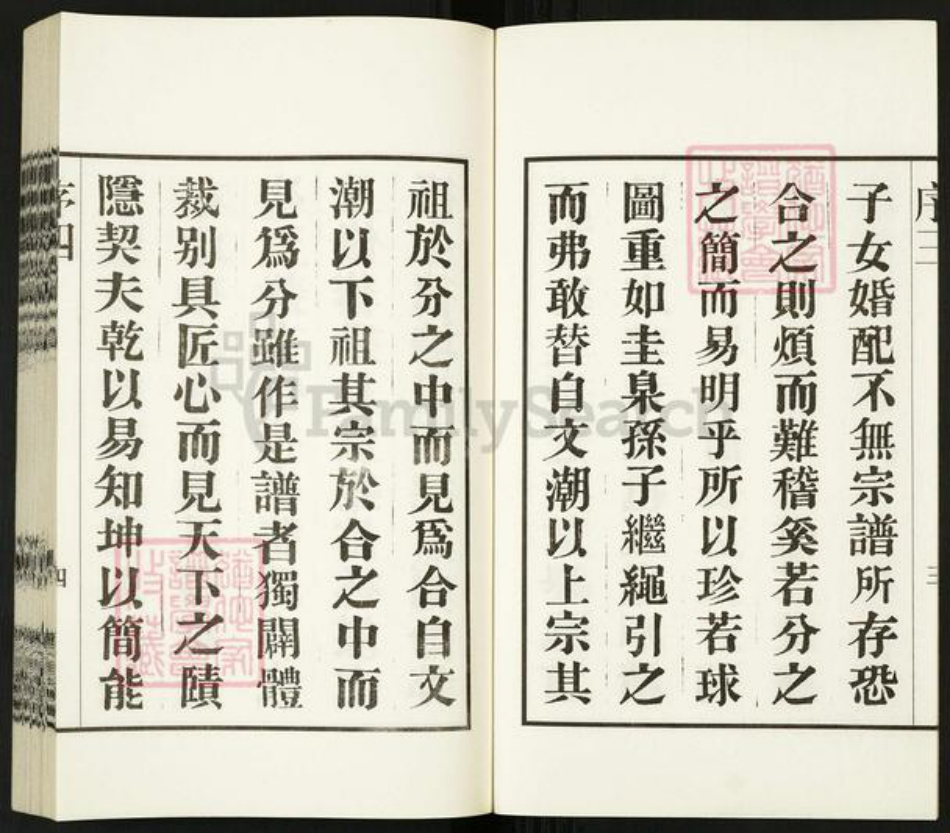 序三
三
子女婚配不無宗譜所存恐
合之則煩而難稽奚若分之
之簡而易明乎所以珍若球
圖重如圭臬孫子繼繩引之
而弗敢替自文潮以上宗其
祖於分之中而見爲合自文
潮以下祖其宗於合之中而
見爲分雖作是譜者獨闢體
裁别具匠心而見天下之賾
隱契夫乾以易知坤以簡能
序四
四
FamilySearch